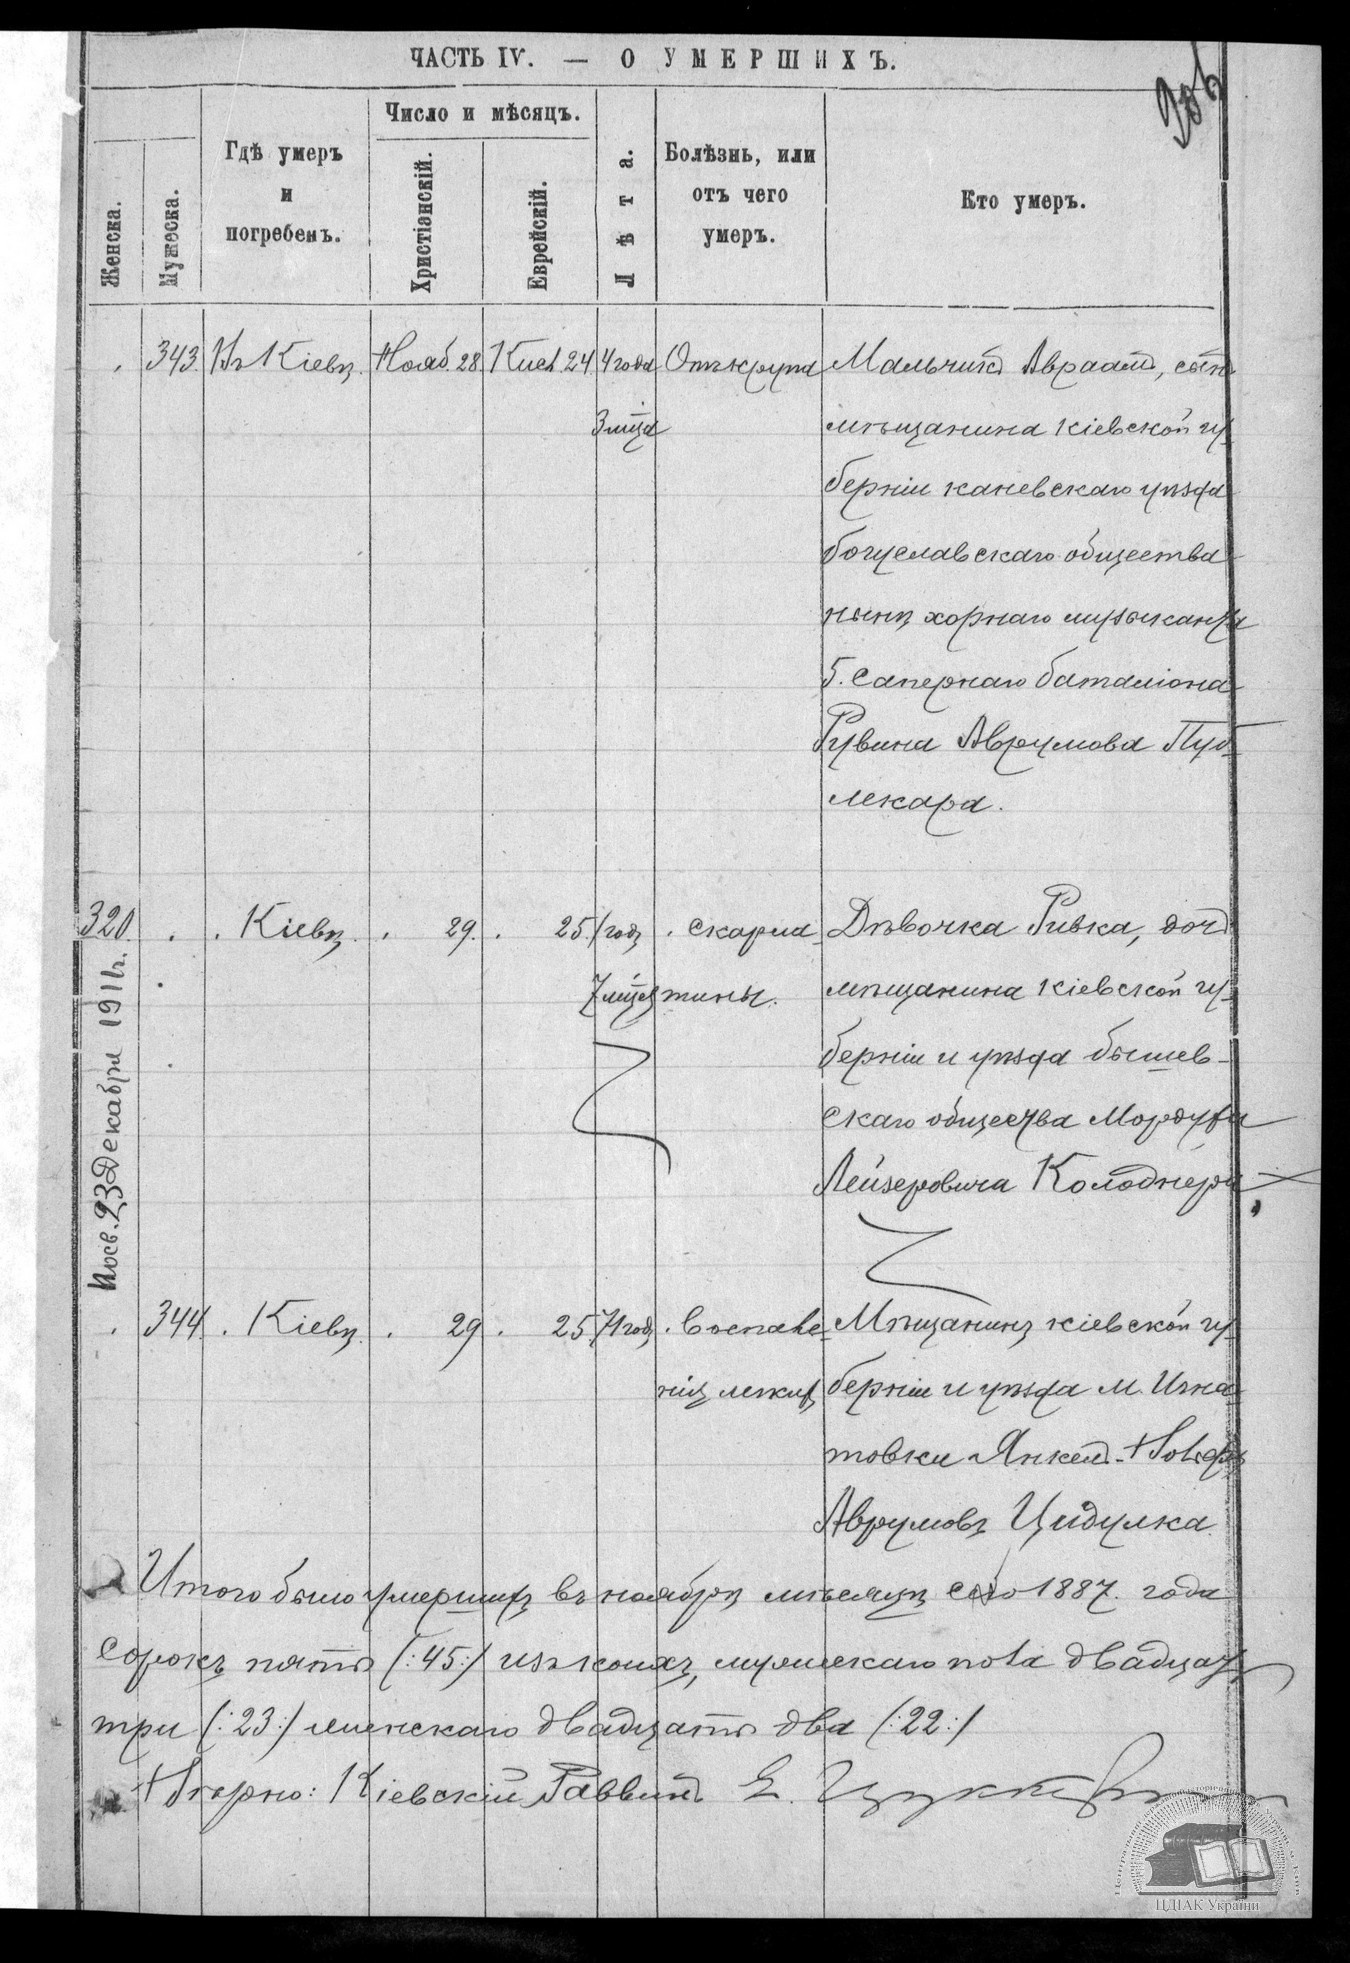 ЧАСТЬ IV. — О УМЕРШИХЪ.
Женска.
Мужеска.
Гдѣ умеръ
и
погребенъ.
Число и мѣсяцъ.
Христіанскій.
Еврейскій.
Лѣта.
Болѣзнь, или
отъ чего
умеръ.
Кто умеръ.
343. Въ Кіевѣ. Нояб. 28. Кисл. 24. 4 года Отъ крупа Мальчикъ Авраамъ, сынъ
3 мѣца мѣщанина кіевской гу-
берніи каневскаго уѣзда
богуславскаго общества
нынѣ хорнаго музыканта
5. сапернаго баталіона
Рувина Аврумова Пуб-
лекара.
320. Кіевѣ. 29. 25. 1 годъ скарла- Дѣвочка Ривка, дочь
7 мѣцев тины. мѣщанина кіевской гу-
берніи и уѣзда бышев-
скаго общества Мордуха
Лейзеровича Колоднера
Посв. 23 Декабря 1911 г.
344. Кіевѣ. 29 25. 71 годъ воспале- Мѣщанинъ кіевской гу-
нія легкихъ берніи и уѣзда м. Игна-
товки Янкель-
Аврумовъ Цидулка
Итого было умершихъ въ ноябрѣ мѣсяцѣ сего 1887. года
сорокъ пять (:45:) изъ коихъ, мужескаго пола двадцать
три (:23:) женскаго двадцать два (:22:)
Вѣрно: Кіевскій Раввинъ Е. Цуккерманъ
ЦДІАК України